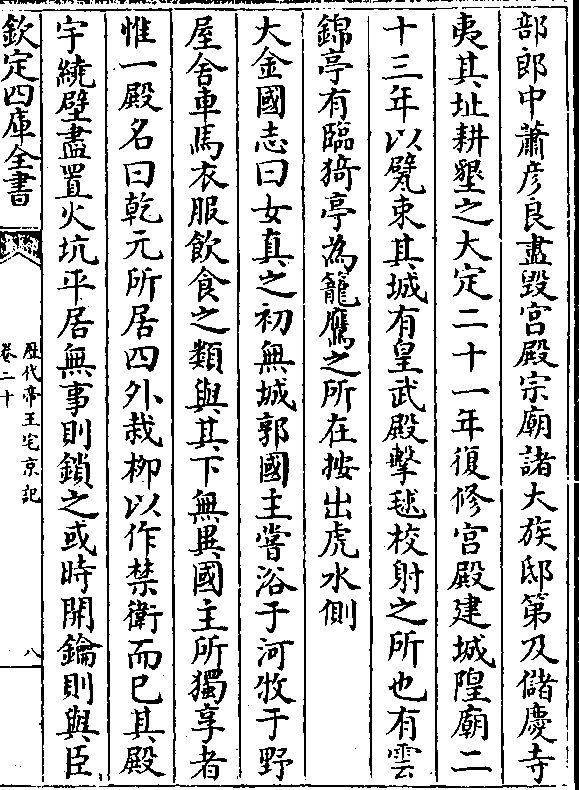 部郎中蕭彦良盡毁宫殿宗廟諸大族邸第及儲慶寺
夷其址耕墾之大定二十一年復修宫殿建城隍廟二
十三年以甓束其城有皇武殿擊毬校射之所也有雲
錦亭有臨猗亭為籠鷹之所在按出虎水側
大金國志曰女真之初無城郭國主嘗浴于河牧于野
屋舍車馬衣服飲食之類與其下無異國主所獨享者
惟一殿名曰乾元所居四外栽柳以作禁衛而已其殿
宇繞壁盡置火炕平居無事則鎖之或時開鑰則與臣
欽定四庫全書
歷代帝王宅京記
卷二十
八